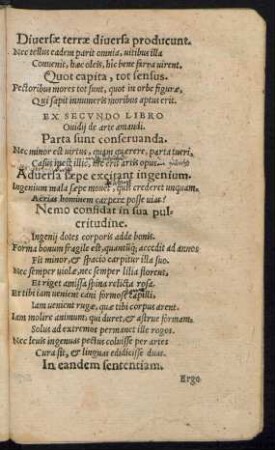 Diversæ terræ diversa producunt.
Nec tellus eadem parit omnia, uitibus illa
Conuenit, hæc oleis, hic bene farra uirent.
Quot capita, tot sensus.
Pectoribus mores tot sunt, quot in orbe figuræ,
Qui sapit innumeris moribus aptus erit.
EX SECVNDO LIBRO
Ouidij de arte amandi.
Parta sunt conseruanda.
Nec minor est uirtus, quàm quærere, parta tueri,
Casus inest illic, hic erit artis opus.
Aduersa sæpe excitant ingenium.
Ingenium mala sæpe mouent, quis crederet unquam,
Aërias hominem carpere posse uias?
Nemo confidat in sua pul-
critudine.
Ingenij dotes corporis adde bonis.
Forma bonum fragile est, quantumq; accedit ad annos
Fit minor, & spacio carpitur illa suo.
Nec semper uiolæ, nec semper lilia florent,
Et riget amissa spina relicta rosa.
Et tibi iam uenient cani formose capilli,
Iam uenient rugæ, quæ tibi corpus arent.
Iam molire animum, qui duret, & astrue formam,
Solus ad extremos permanet ille rogos.
Nec leuis ingenuas pectus coluisse per artes
Cura sit, & linguas edidicisse duas.
In eandem sententiam.
Ergo